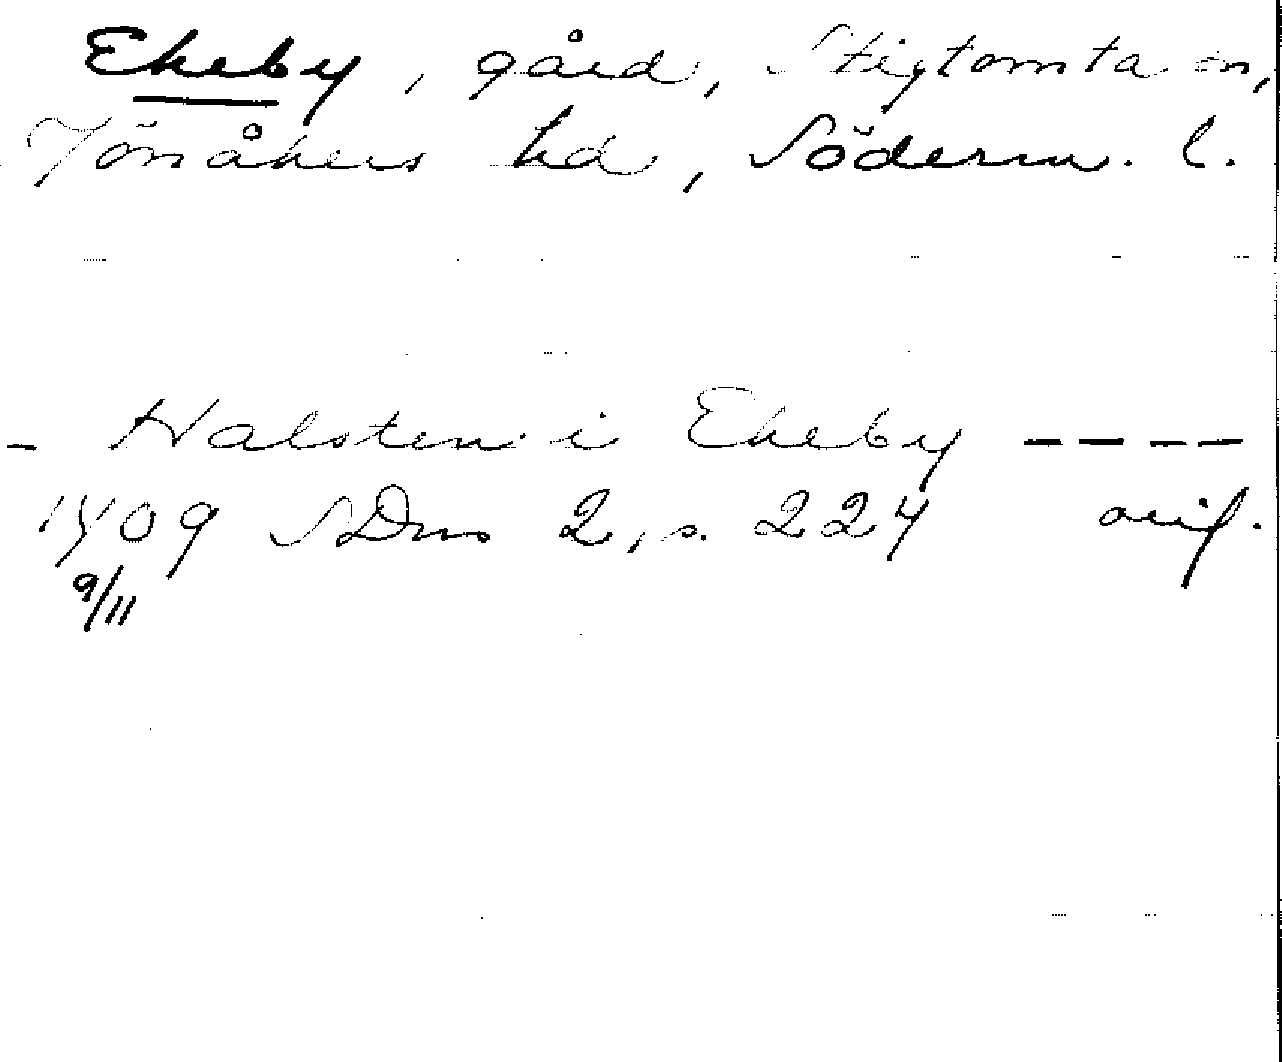 Ekeby, gård, Stigtomta sn,
Jönåkers hd, Söderm. l.
- Halsten i Ekeby ----
1409 SDns 2, s. 224 orig.
9/11